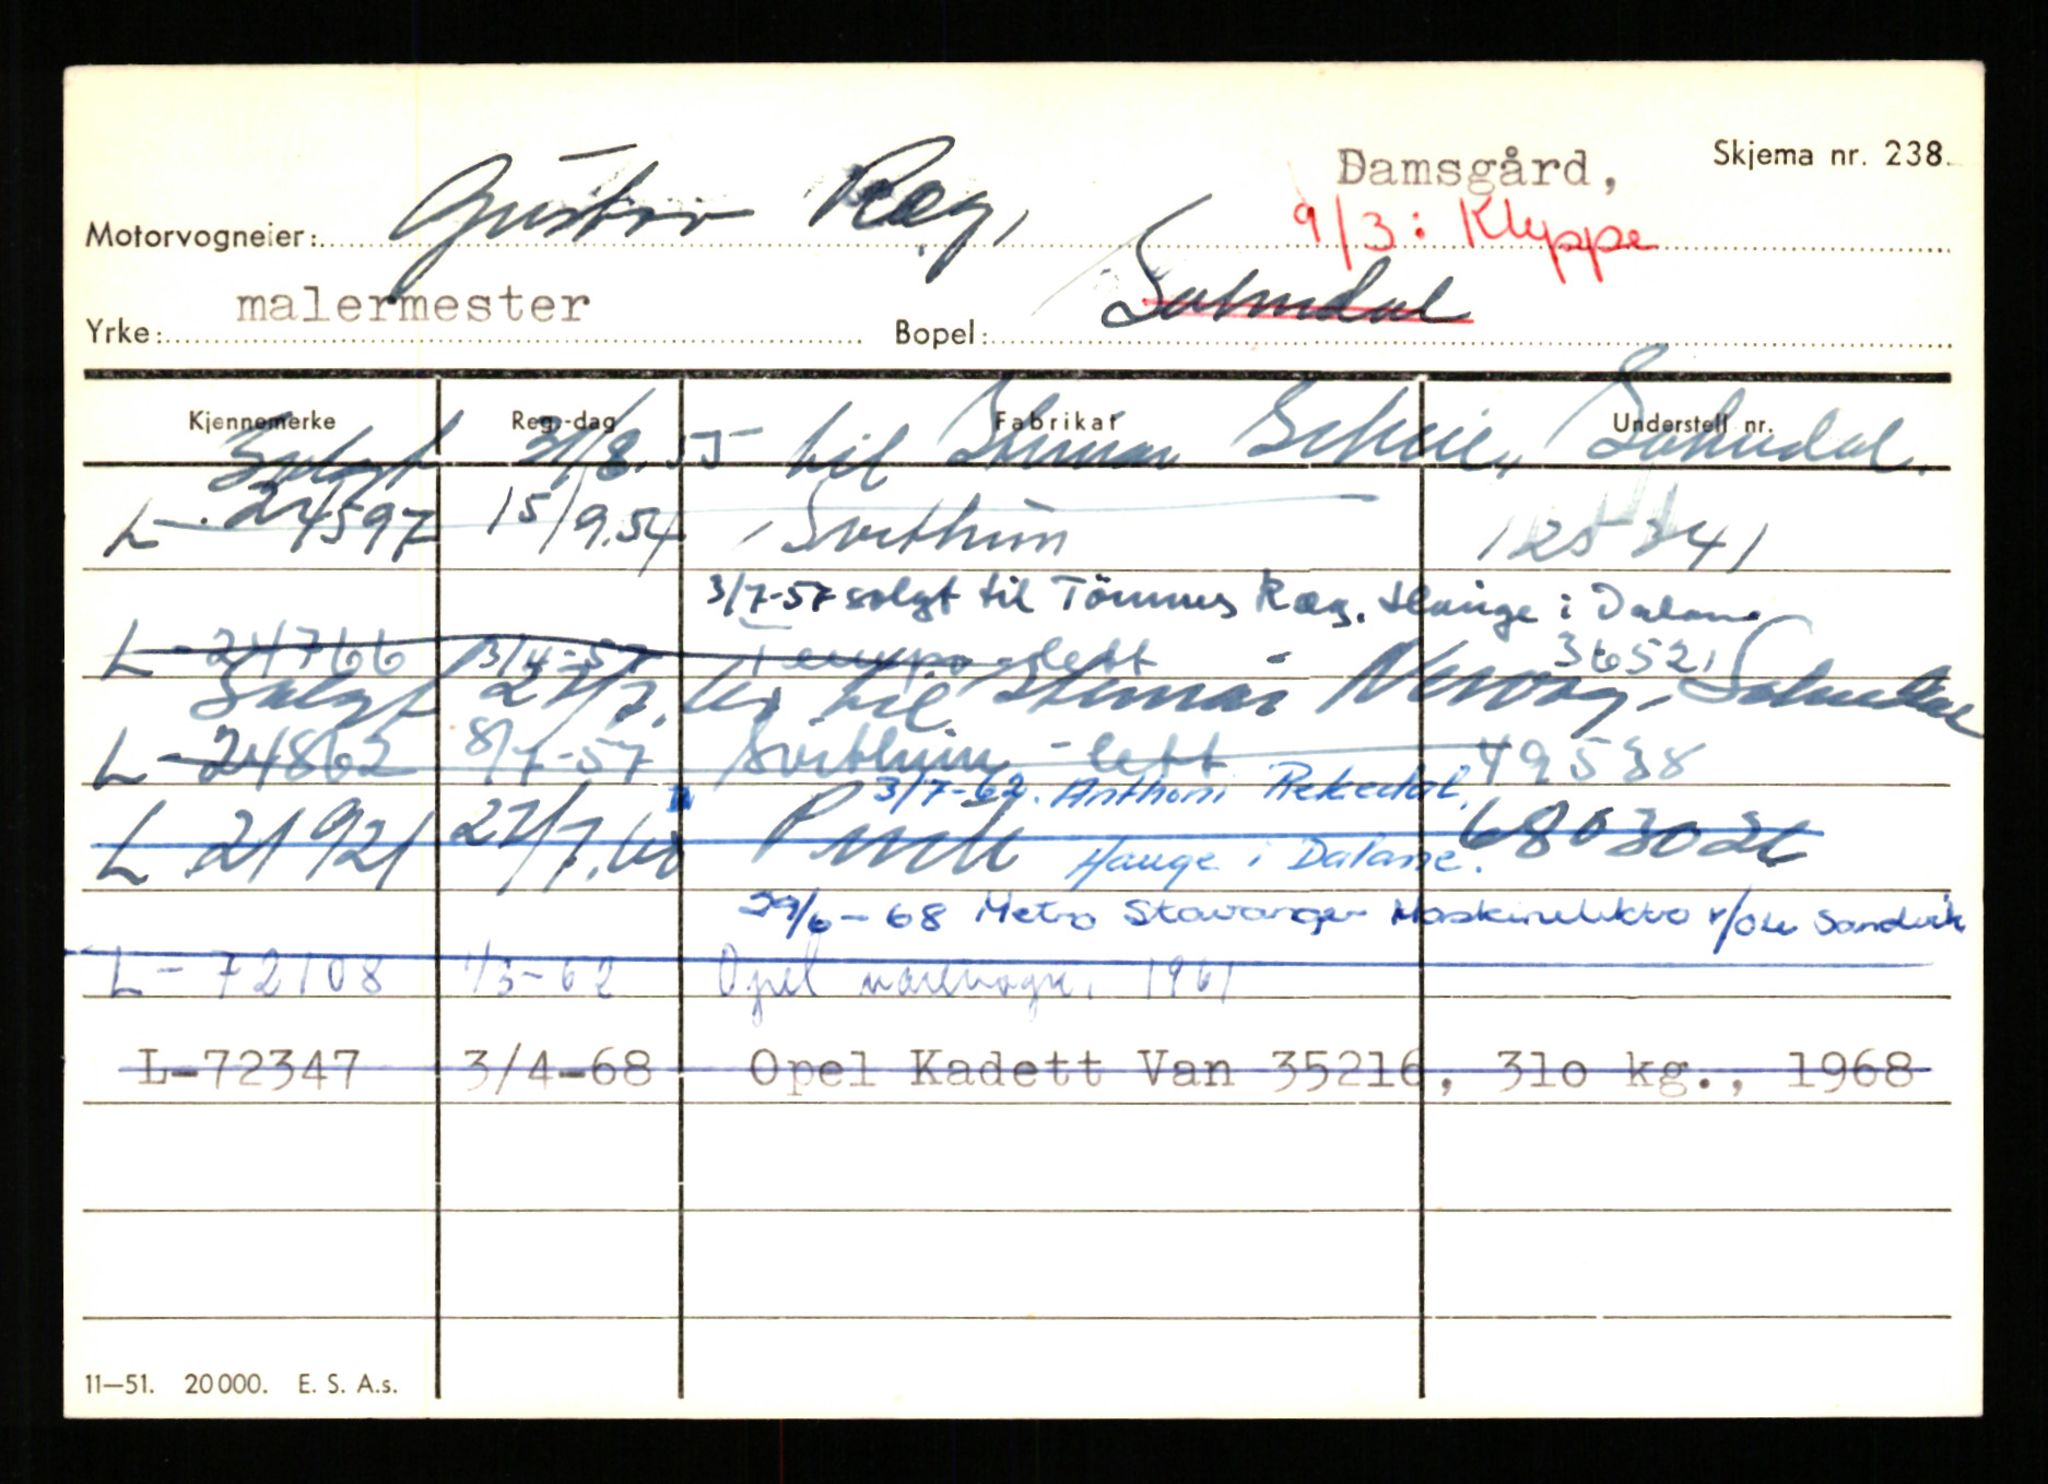 Damsgård, Skjema nr. 238.
Motorvogneier: Gustav Ræg, 9/3: Klyppe
Yrke: malermester Bopel: Sokndal
Kjennemerke Reg.-dag Fabrikat Understell nr.
Solgt 31/8.55 til Sokndal.
L-24597 15/9.54 Svithun 125341
3/7-57 solgt til Tönnes Ræg. Hauge i Dalane
L-24766 3/4-57 Tempo-lett 36521
Solgt 27/7.60 til Sokndal
L-24862 8/7-57 Svithun-lett 49538
3/7-62. Anthoni Rekedal,
L.21921 27/7.60 Puch 6803026
Hauge i Dalane.
29/6-68 Metro Stavanger Maskinelektro v/Ole Sandvik
L-72108 1/3-62 Opel varevogn, 1961
L-72347 3/4-68 Opel Kadett Van 35216, 310 kg., 1968
11—51. 20000. E. S. A.s.